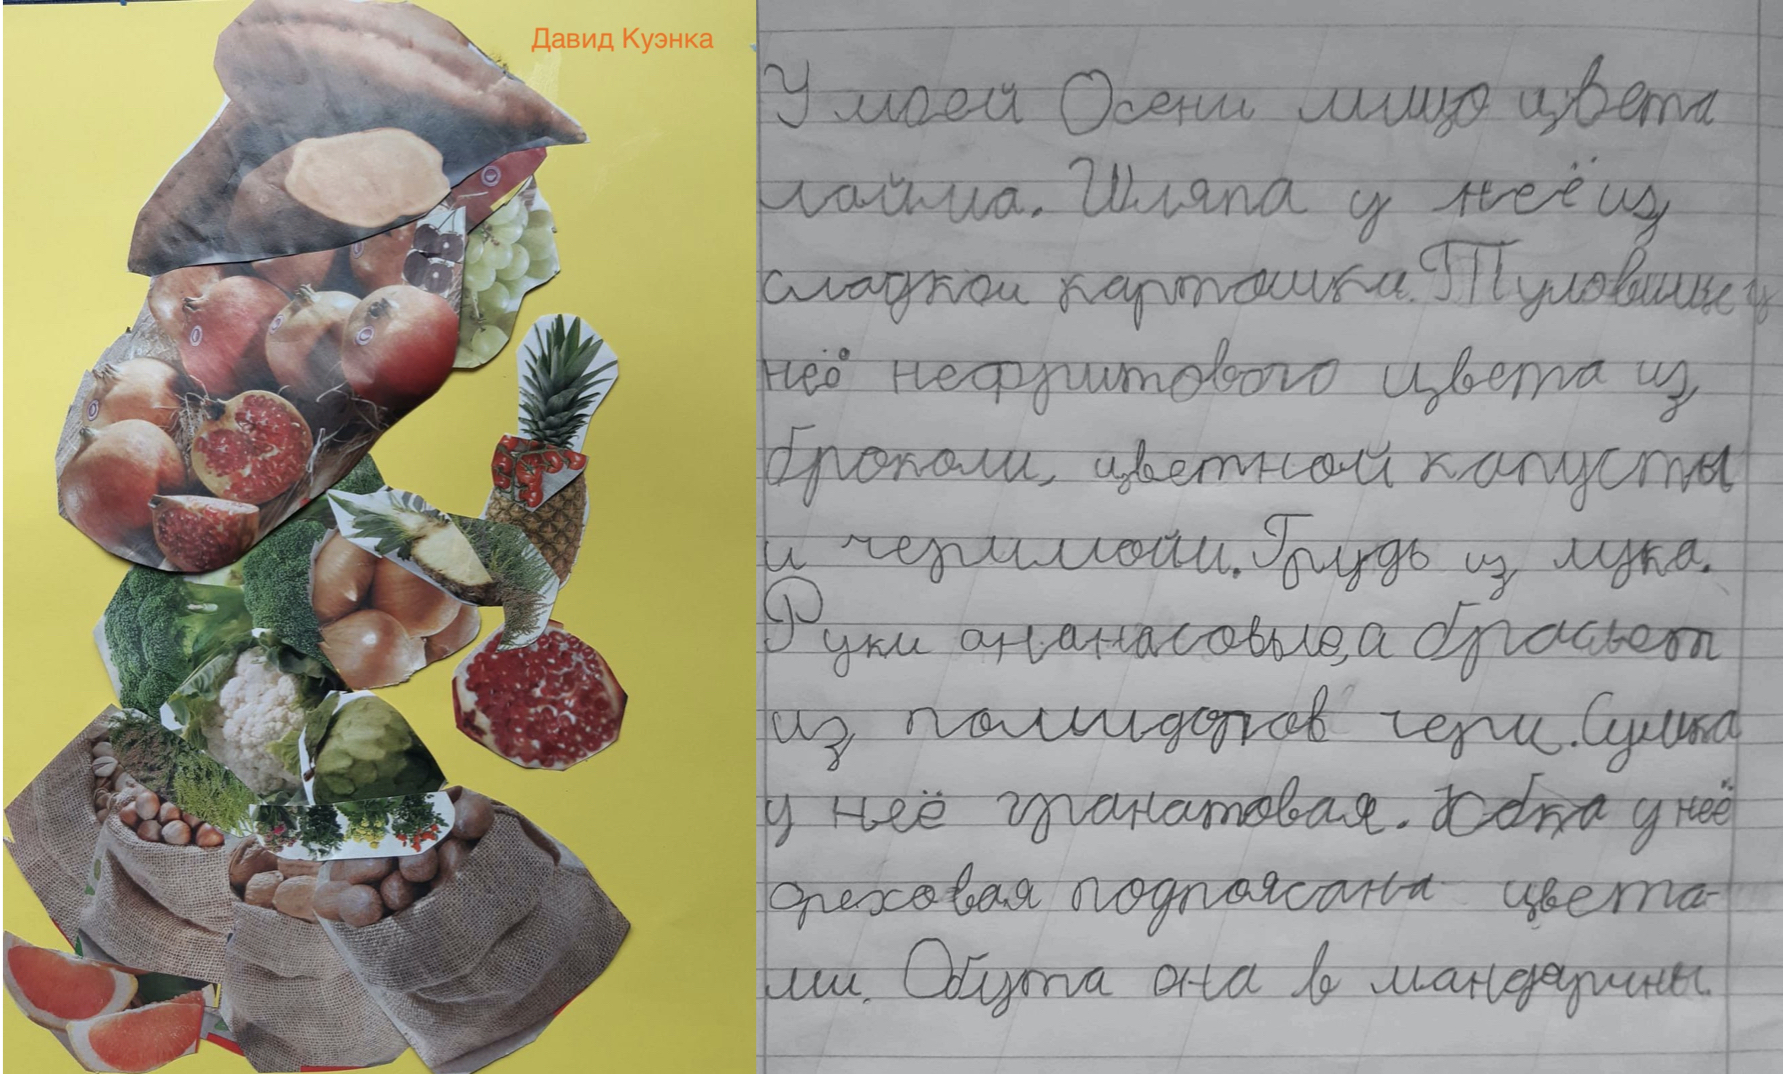 Давид Куэнка
У моей Осени лицо цвета
лайма. Шляпа у неё из
сладкой картошки. Туловище у
неё нефритового цвета из
броколи, цветной капусты
и черимойи. Грудь из лука.
Руки ананасовые, а браслет
из помидоров чери. Сумка
у неё гранатовая. Юбка у неё
ореховая подпоясана цвета-
ми. Обута она в мандарины.